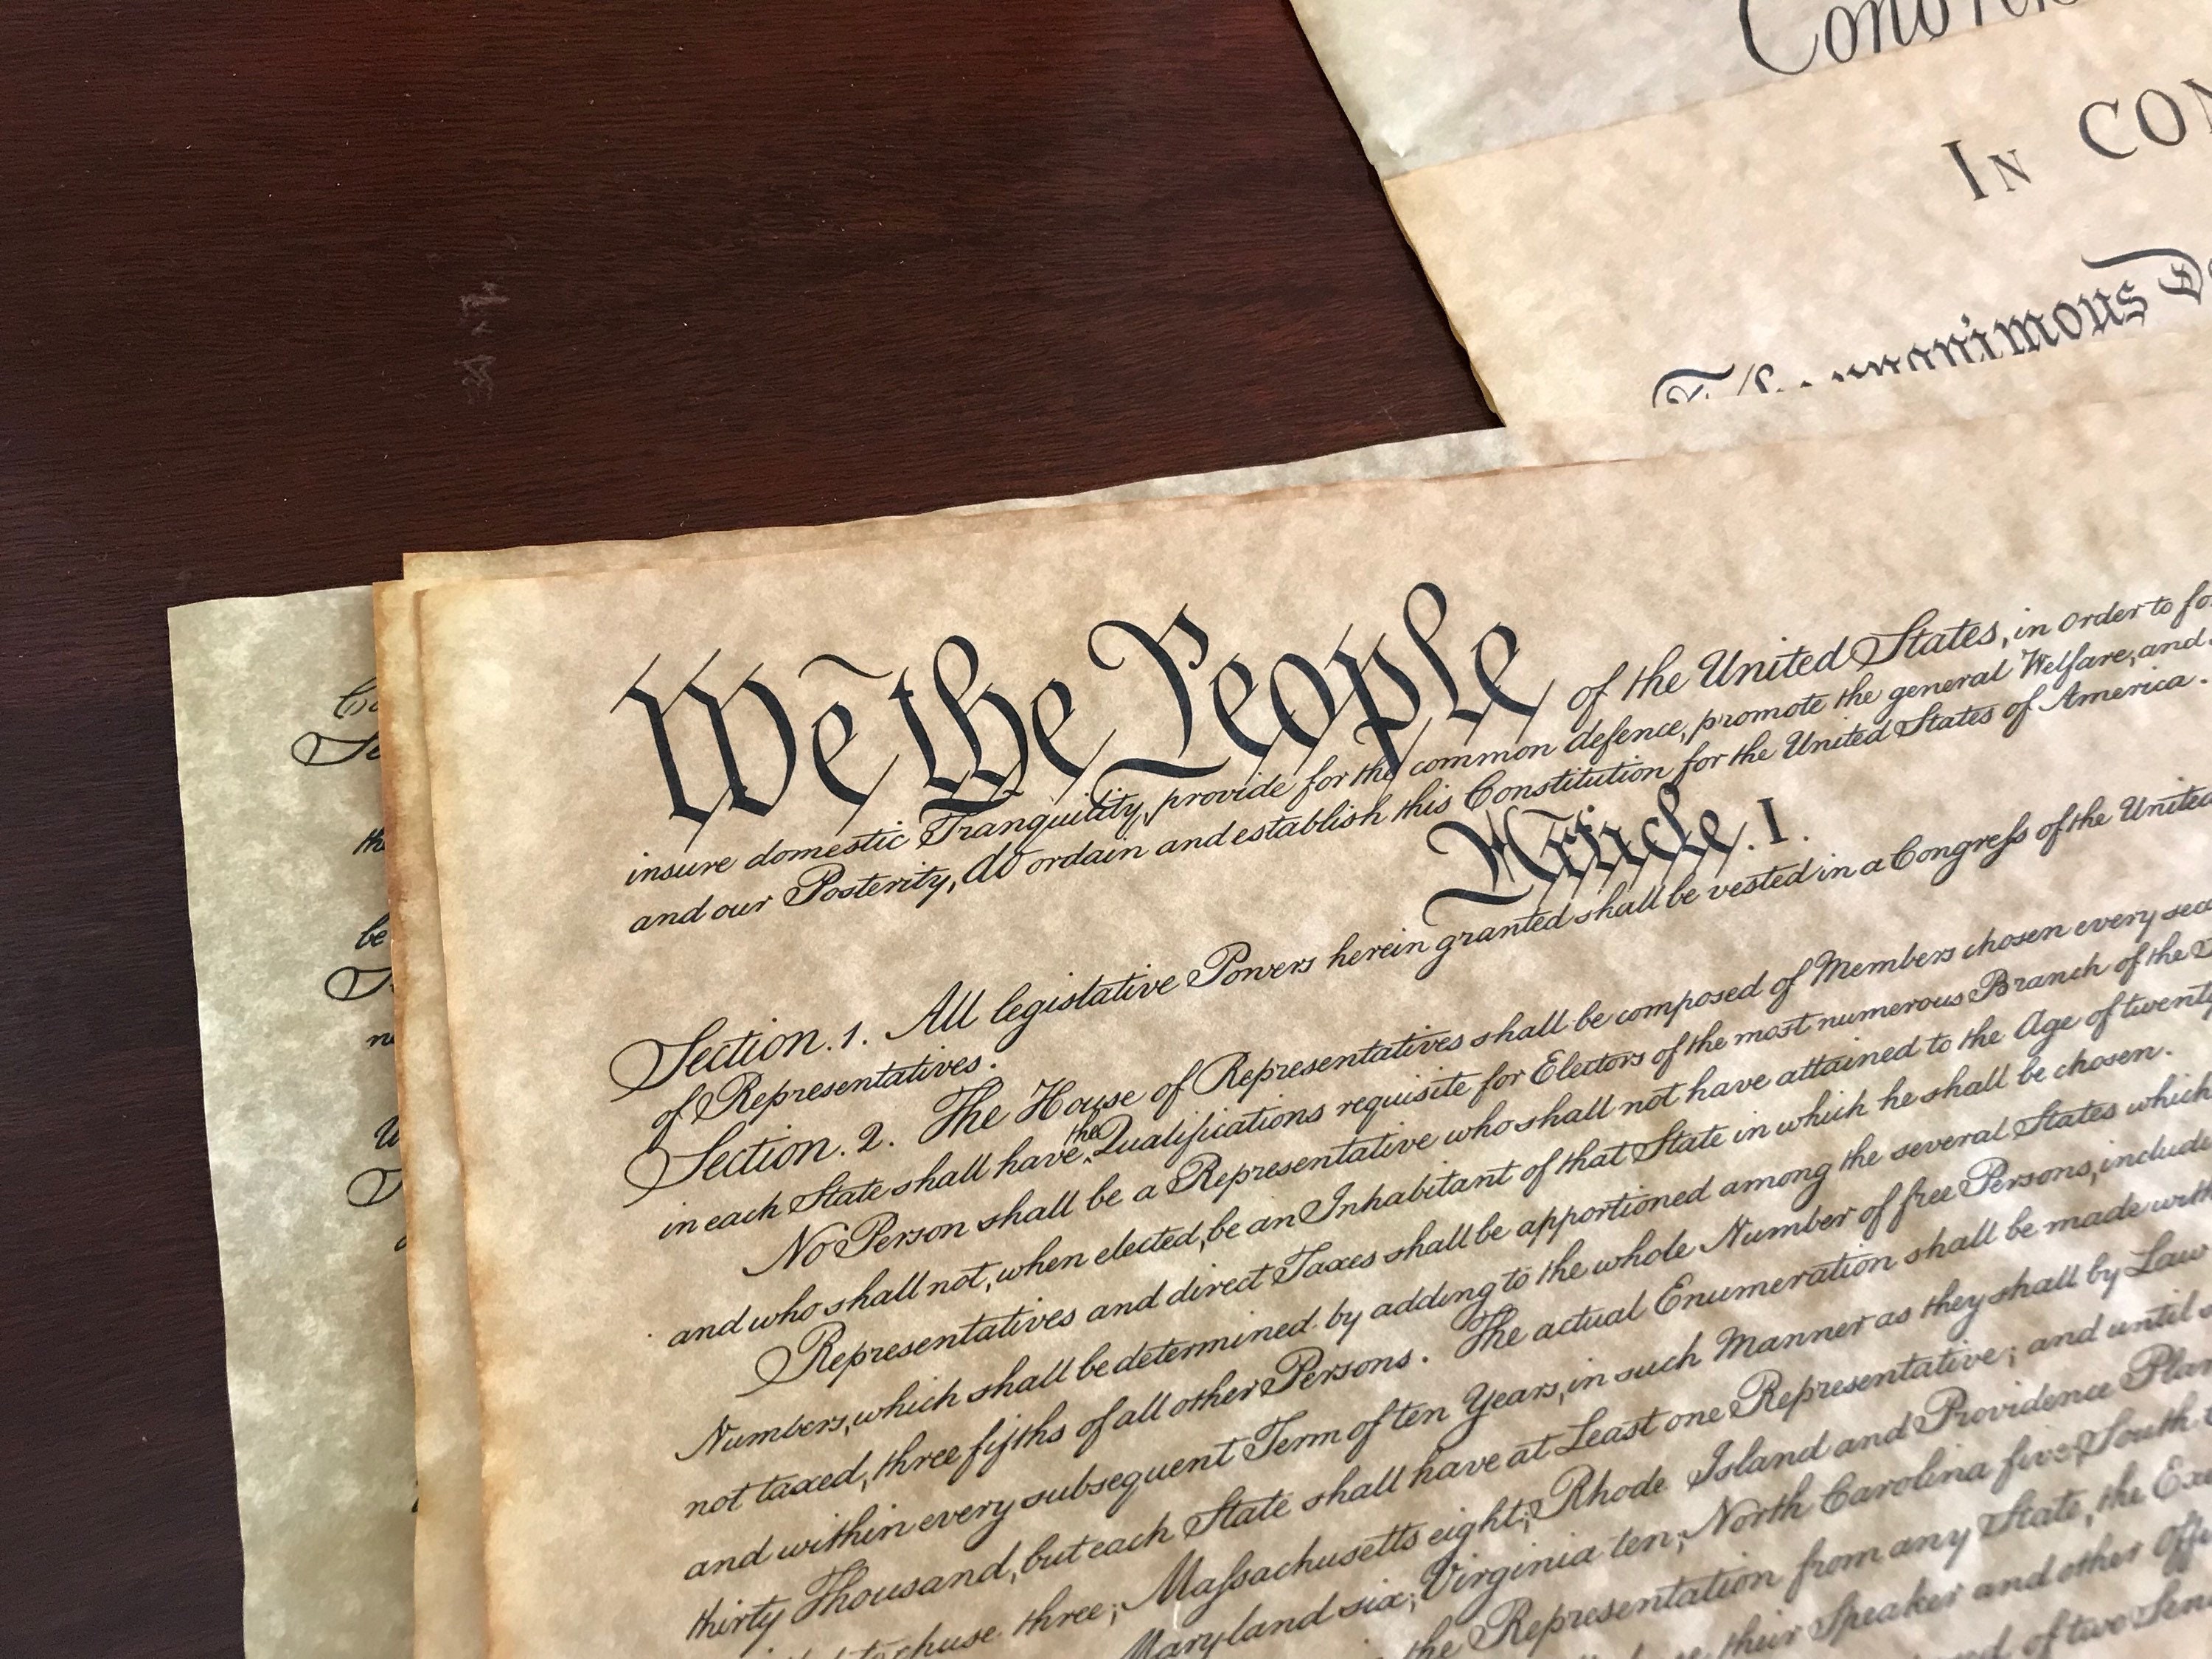 Congres
IN CON
The unanimous De
We the People of the United States, in Order to fo
insure domestic Tranquility, provide for the common defence, promote the general Welfare, and
and our Posterity, do ordain and establish this Constitution for the United States of America.
Article. I.
Section. 1. All legislative Powers herein granted shall be vested in a Congreſs of the United
of Representatives.
Section. 2. The House of Representatives shall be composed of Members chosen every sec
in each State shall have the Qualifications requisite for Electors of the most numerous Branch of the
No Person shall be a Representative who shall not have attained to the Age of twenty
and who shall not, when elected, be an Inhabitant of that State in which he shall be chosen.
Representatives and direct Taxes shall be apportioned among the several States which
Numbers, which shall be determined by adding to the whole Number of free Persons, include
not taxed, three fifths of all other Persons. The actual Enumeration shall be made with
and within every subsequent Term of ten Years, in such Manner as they shall by Law
thirty Thousand, but each State shall have at Least one Representative; and until s
to chuse three; Maſsachusetts eight; Rhode Island and Providence Plan
Maryland six; Virginia ten; North Carolina five; South
the Representation from any State, the Exe
their Speaker and other Offi
of two Sen
the
be